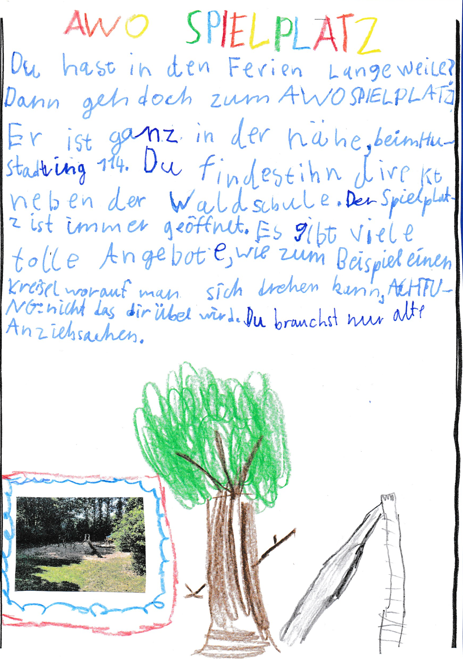 AWO SPIELPLATZ
Du hast in den Ferien Langeweile?
Dann geh doch zum AWOSPIELPLATZ
Er ist ganz in der nähe, beim Hu-
stadtring 114. Du findest ihn direkt
neben der Waldschule. Der Spielplat-
z ist immer geöffnet. Es gibt viele
tolle Angebote, wie zum Beispiel einen
Kreisel worauf man sich drehen kann, ACHTU-
NG: nicht das dir übel wird. Du brauchst nur alte
Anziehsachen.